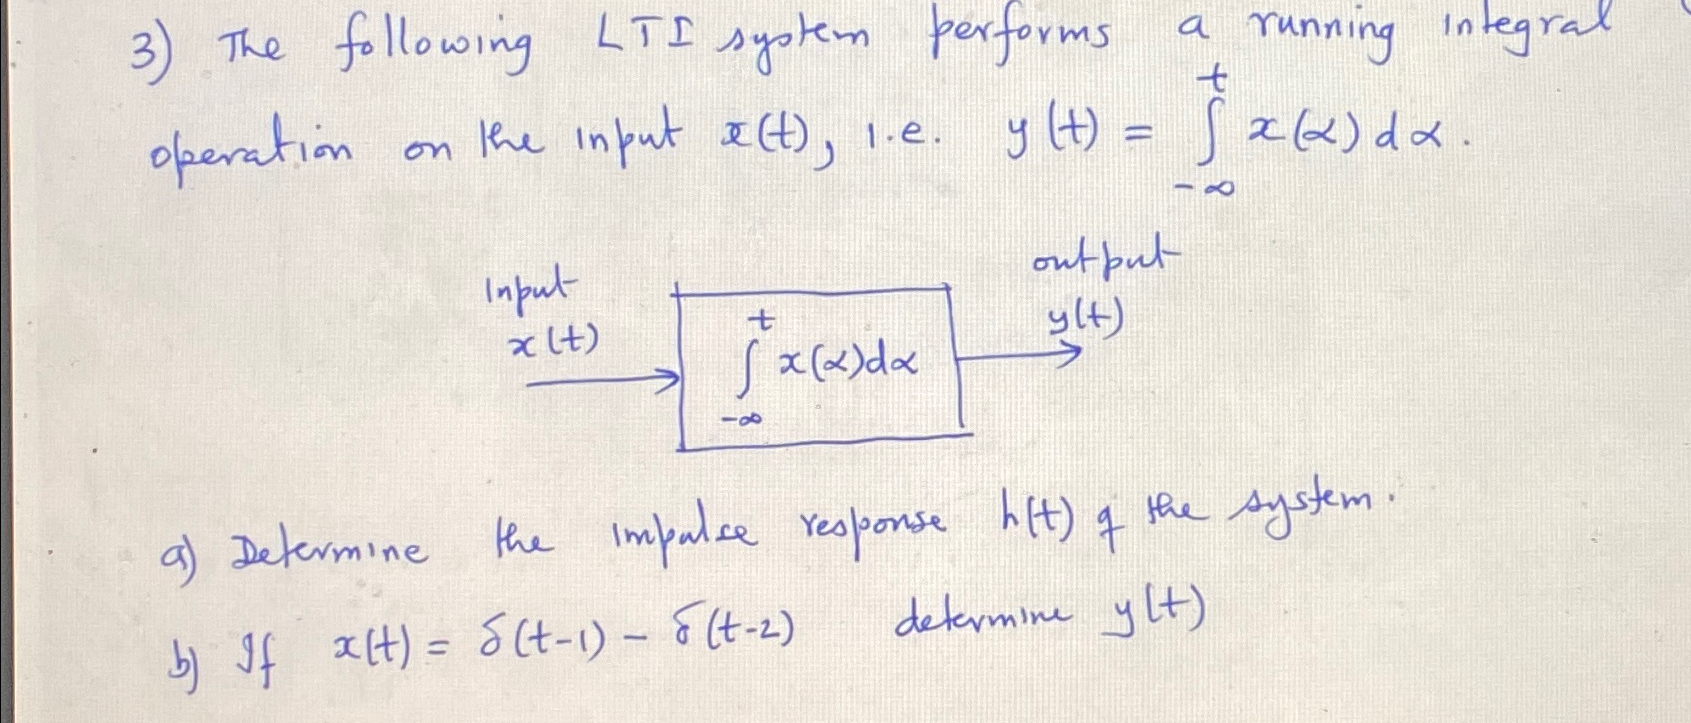 3) The following LTI system performs a running integral
operation on the input x(t), i.e. y(t) = ∫_{-∞}^{t} x(α)dα.
Input
x(t)
∫_{-∞}^{t} x(α)dα
output
y(t)
a) Determine the impulse response h(t) of the system.
b) If x(t) = δ(t-1) - δ(t-2) determine y(t)